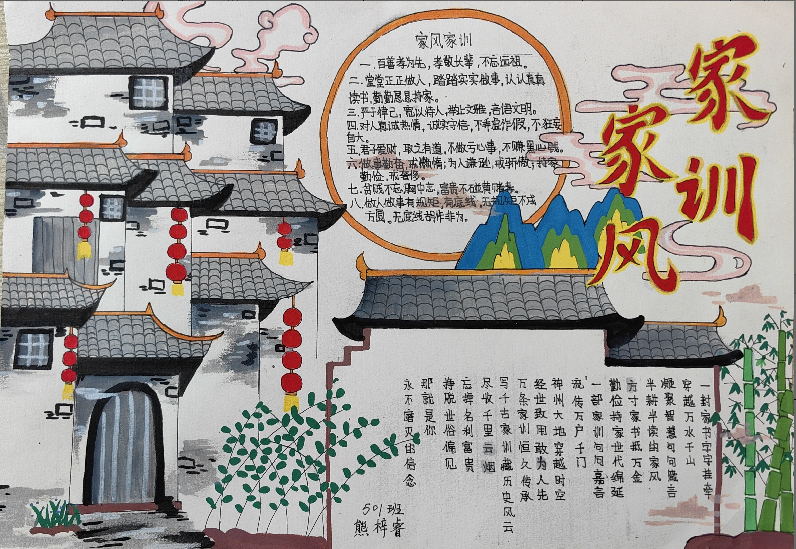 家训
家风
家风家训
一.百善孝为先，孝敬长辈，不忘远祖。
二.堂堂正正做人，踏踏实实做事，认认真真
读书，勤勤恳恳持家。
三.严于律己，宽以待人，举止文雅，言语文明。
四.对人真诚热情，诚实守信，不弄虚作假，不狂妄
自大。
五.君子爱财，取之有道，不做亏心事，不赚黑心钱。
六.做事勤奋，戒懒惰；为人谦逊，戒骄傲；持家
勤俭，戒奢侈。
七.贫贱不忘胸中志，富贵不
八.做人做事有规矩，有底线，无规矩不成
方圆，无底线胡作非为。
一封家书字字推幸
穿越万水千山
凝聚智慧句句箴言
半耕半读的家风
方寸家书抵万金
勤俭持家世代绵延
一部家训句句嘉言
流传万户千门
神州大地穿越时空
经世致用敢为人先
万条家训恒久传承
写千古家训藏历史风云
尽收千里云烟
忘掉名利富贵
挣脱世俗偏见
那就是你
永不磨灭的信念
501班
熊梓睿